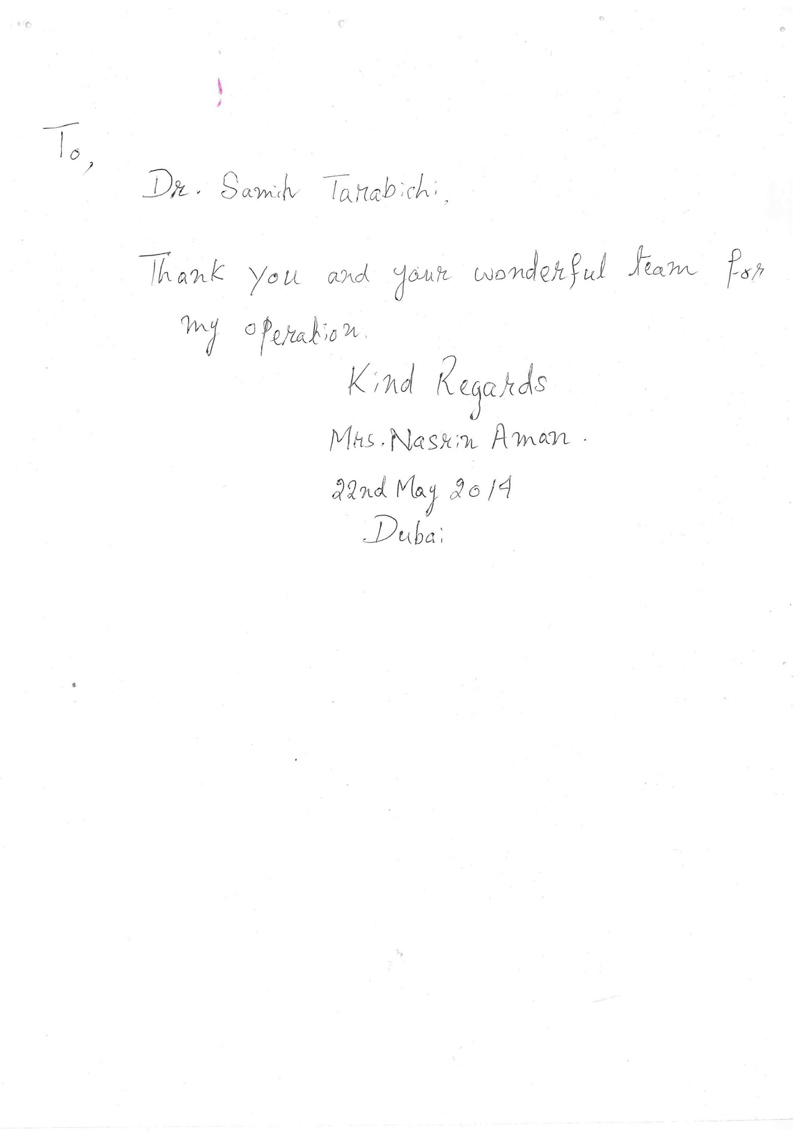 To,
Dr. Samih Tarabichi,
Thank you and your wonderful team for
my operation.
Kind Regards
Mrs. Nasrin Aman.
22nd May 2014
Dubai